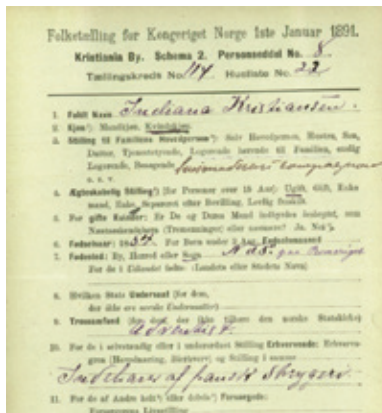 Folketælling for Kongeriget Norge 1ste Januar 1891.
Kristiania By. Schema 2. Personseddel No. 8
Tællingskreds No. 114 Husliste No. 22
1. Fuldt Navn Indiana Kristiansen.
2. Kjøn¹): Mandkjøn. Kvindekjøn.
3. Stilling til Familiens Hovedperson¹): Selv Hovedperson, Hustru, Søn,
Datter, Tjenestetyende, Logerende hørende til Familien, enslig
Logerende, Besøgende
o. s. v.
4. Ægteskabelig Stilling¹) (for Personer over 15 Aar): Ugift, Gift, Enke
mand, Enke, Separeret efter Bevilling, Lovlig fraskilt.
5. For gifte Kvinder: Er De og Deres Mand indbyrdes beslegtet, som
Næstsøskendebørn (Tremenninger) eller nærmere? Ja. Nei¹).
6. Fødselsaar: 1834 For Børn under 2 Aar: Fødselsmaaned
7. Fødested: By, Herred eller Sogn
For de i Udlandet fødte: (Landets eller Stedets Navn)
8. Hvilken Stats Undersaat (for dem,
der ikke ere norske Undersaatter)
9. Trossamfund (for dem, der ikke tilhøre den norske Statskirke)
Adventist
10. For de i selvstændig eller i underordnet Stilling Erhvervende: Erhvervs-
gren (Haandtering, Næringsvei) og Stilling i samme
Indehaver af fransk Strygeri
11. For de af Andre helt¹) eller delvis¹) Forsørgede:
Forsørgerens Livsstilling